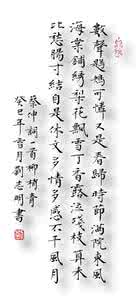 數聲鶗鴂可憐又是春歸時節滿院東風
海棠鋪繡梨花飄雪丁香露泣殘枝算未
比愁腸寸結自是休文多情多感不干風月
蔡伸詞一首柳梢青
癸巳年雪月劉志明書